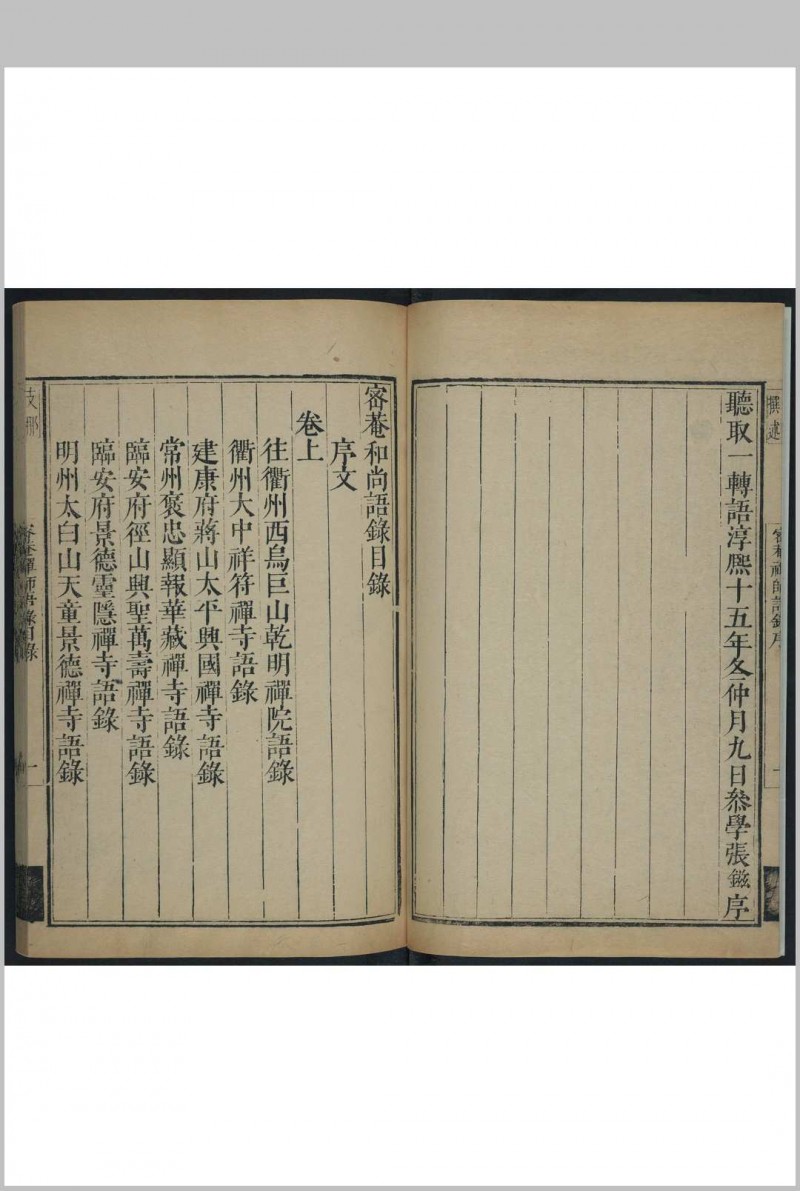 撰述
密菴禪師語錄序
一
聽取一轉語淳熈十五年冬仲月九日叅學張鎡序
密菴和尚語錄目錄
序文
卷上
往衢州西烏巨山乾明禪院語錄
衢州大中祥符禪寺語錄
建康府蔣山太平興國禪寺語錄
常州褒忠顯報華藏禪寺語錄
臨安府徑山興聖萬壽禪寺語錄
臨安府景德靈隱禪寺語錄
明州太白山天童景德禪寺語錄
支那
密菴禪師語錄目錄
一